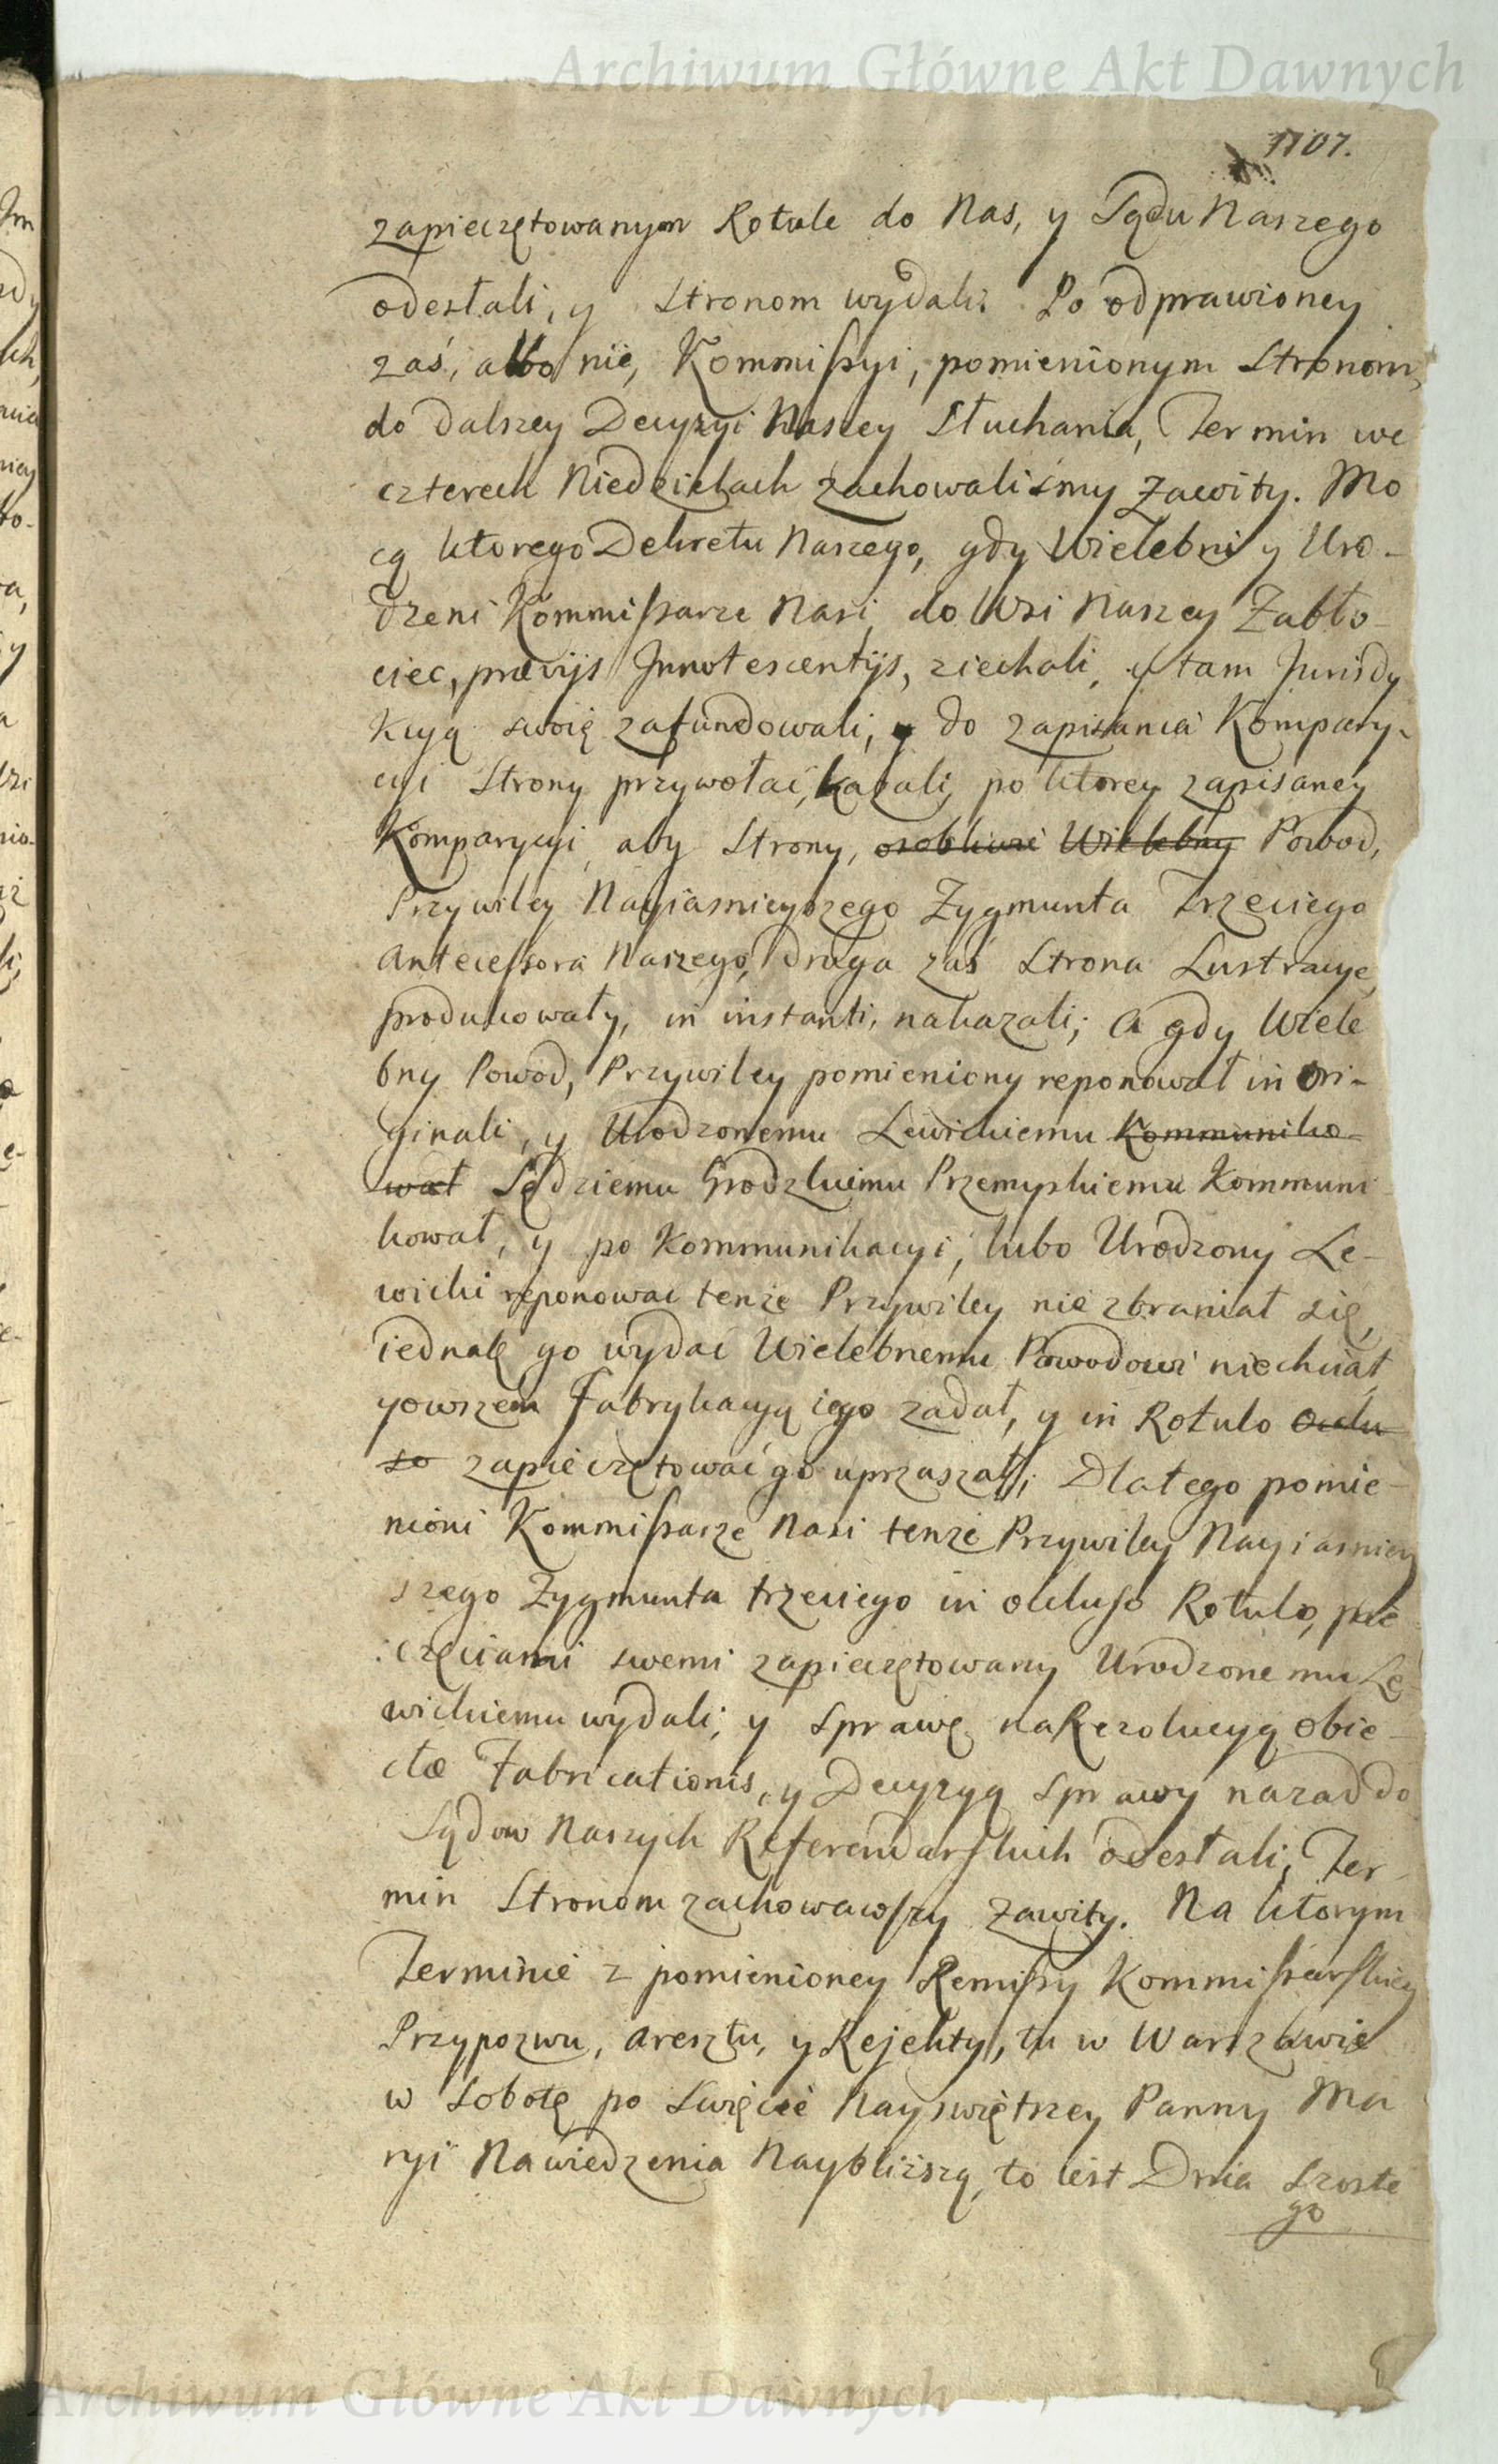 Archiwum Główne Akt Dawnych
1707.
zapieczętowanym Rotule do Nas, y Sądu Naszego
odesłali, y Stronom wydali. Po odprawioney
zaś, albo nie, Kommissyi, pomienionym Stronom,
do dalszey Decyzyi Naszey Słuchania, Termin we
czterech Niedzielach zachowaliśmy Zawity. Mo
cą ktorego Dekretu Naszego, gdy Wielebni y Uro-
dzeni Kommissarze Nasi, do Wsi Naszey Zabło-
ciec, prævijs Innotescentijs, ziechali, y tam Jurisdy
kcyą swoię zafundowali, y do zapisania Kompary-
cyi Strony przywołać kazali, po ktorey zapisaney
Komparycyi, aby Strony, osobliwie Wielebny Powod,
Przywiley Nayiasnieyszego Zygmunta Trzeciego
Antecessora Naszego, druga zaś Strona Lustracye
produkowały, in instanti, nakazali; A gdy Wiele
bny Powod, Przywiley pomieniony reponował in Ori-
ginali, y Urodzonemu Lewickiemu Kommuniko-
wał Sędziemu Grodzkiemu Przemyskiemu Kommuni
kował, y po Kommunikacyi, lubo Urodzony Le-
wicki reponować tenże Przywiley nie zbraniał się,
iednak go wydać Wielebnemu Powodowi niechciał,
yowszem Fabrykacyą iego zadał, y in Rotulo Oclu
so zapieczętować go upraszał; Dlatego pomie-
nioni Kommissarze Nasi tenże Przywiley Nayiasniey
szego Zygmunta trzeciego in ocluso Rotulo, pie
częciami swemi zapieczętowany Urodzonemu Le-
wickiemu wydali, y Sprawę na Rezolucyą obie-
ctæ Fabricationis, y Decyzyą Sprawy nazad do
Sądow Naszych Referendarskich odesłali, Ter-
min Stronom zachowawszy Zawity. Na ktorym
Terminie z pomienioney Remissy Kommissarskiey
Przypozwu, Aresztu, y Rejekty, tu w Warszawie
w Sobotę po Swięcie Nayswiętszey Panny Ma
ryi Nawiedzenia Naybliższą, to iest Dnia Szoste
go
Archiwum Główne Akt Dawnych